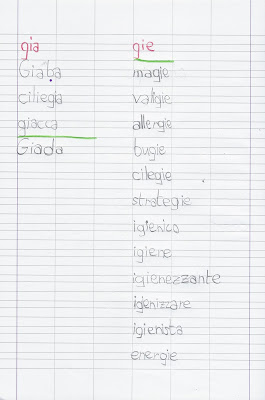 gia
Giaba
ciliegia
giacca
Giada
gie
magie
valigie
allergie
bugie
cilegie
strategie
igienico
igiene
igienezzante
igienizzare
igienista
energie